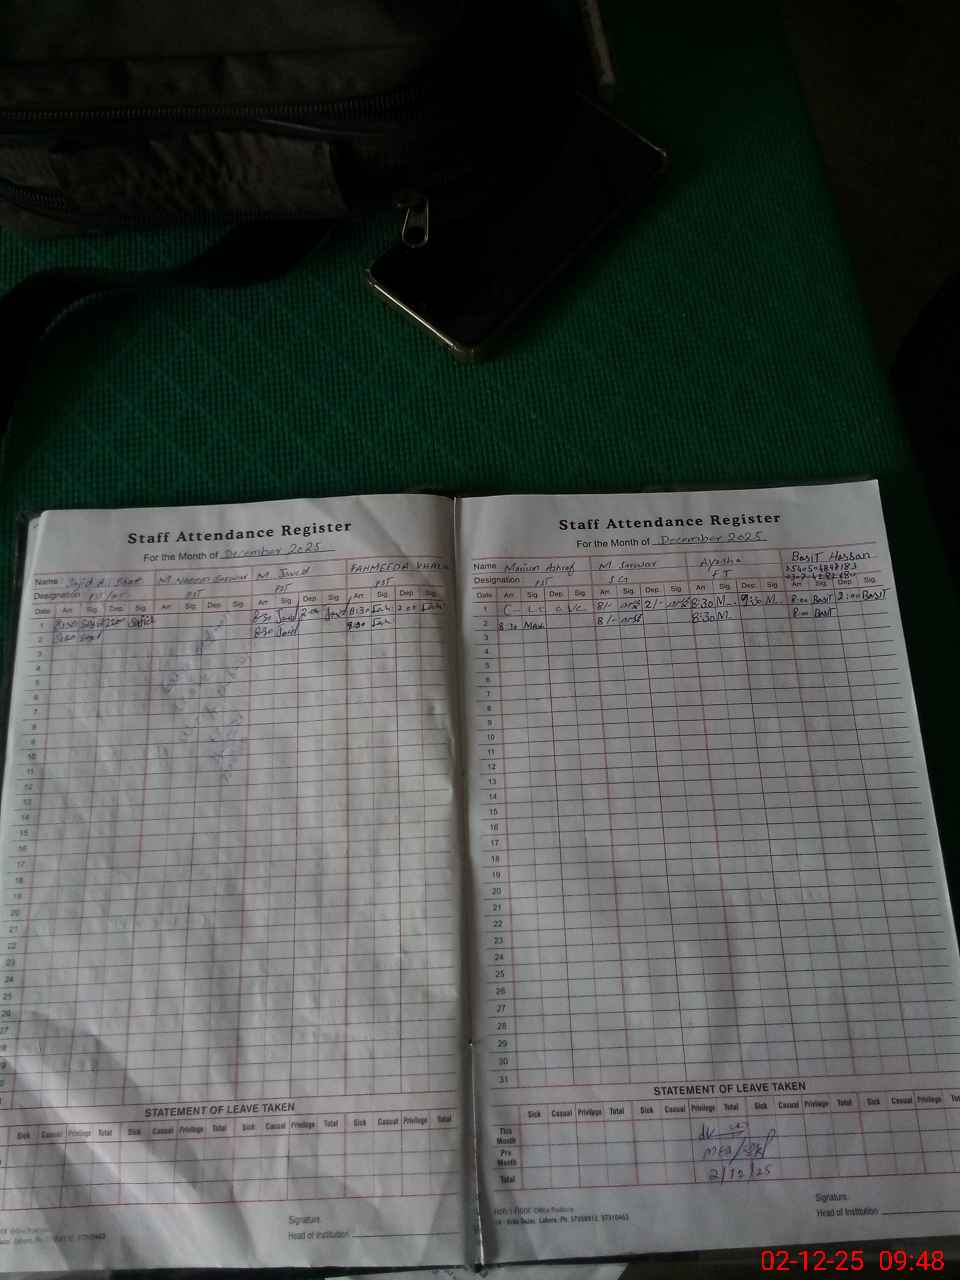 Staff Attendance Register
For the Month of December 2025
Name Sajid Ali M. Naeem Sarwar M. Javed FAHMEEDA KHALID
Designation PST PST PST PST
Date Arr. Sig. Dep. Sig. Arr. Sig. Dep. Sig. Arr. Sig. Dep. Sig. Arr. Sig. Dep. Sig.
1 8:30 Sajid 2:00 Sajid 8:30 Javed 2:00 Javed 8:30 2:00
2 8:30 Sajid 8:30 Javed 8:30
3
4
5
6
7
8
9
10
11
12
13
14
15
16
17
18
19
20
21
22
23
24
25
26
27
28
29
30
STATEMENT OF LEAVE TAKEN
Sick Casual Privilege Total Sick Casual Privilege Total Sick Casual Privilege Total Sick Casual Privilege Total
Signature
Head of Institution
Staff Attendance Register
For the Month of December 2025
Name Marium Ashraf M. Sarwar Ayesha BASIT Hassan
Designation PST SG FT
Date Arr. Sig. Dep. Sig. Arr. Sig. Dep. Sig. Arr. Sig. Dep. Sig. Arr. Sig. Dep. Sig.
1 8/- 2/- 8:30 M. 9:30 M. 8:00 BASIT 2:00 BASIT
2 8:30 8/- 8:30 M. 8:00 BASIT
3
4
5
6
7
8
9
10
11
12
13
14
15
16
17
18
19
20
21
22
23
24
25
26
27
28
29
30
31
STATEMENT OF LEAVE TAKEN
Sick Casual Privilege Total Sick Casual Privilege Total Sick Casual Privilege Total Sick Casual Privilege Total
This Month
Pre Month
Total
2/12/25
Signature
Head of Institution
02-12-25 09:48